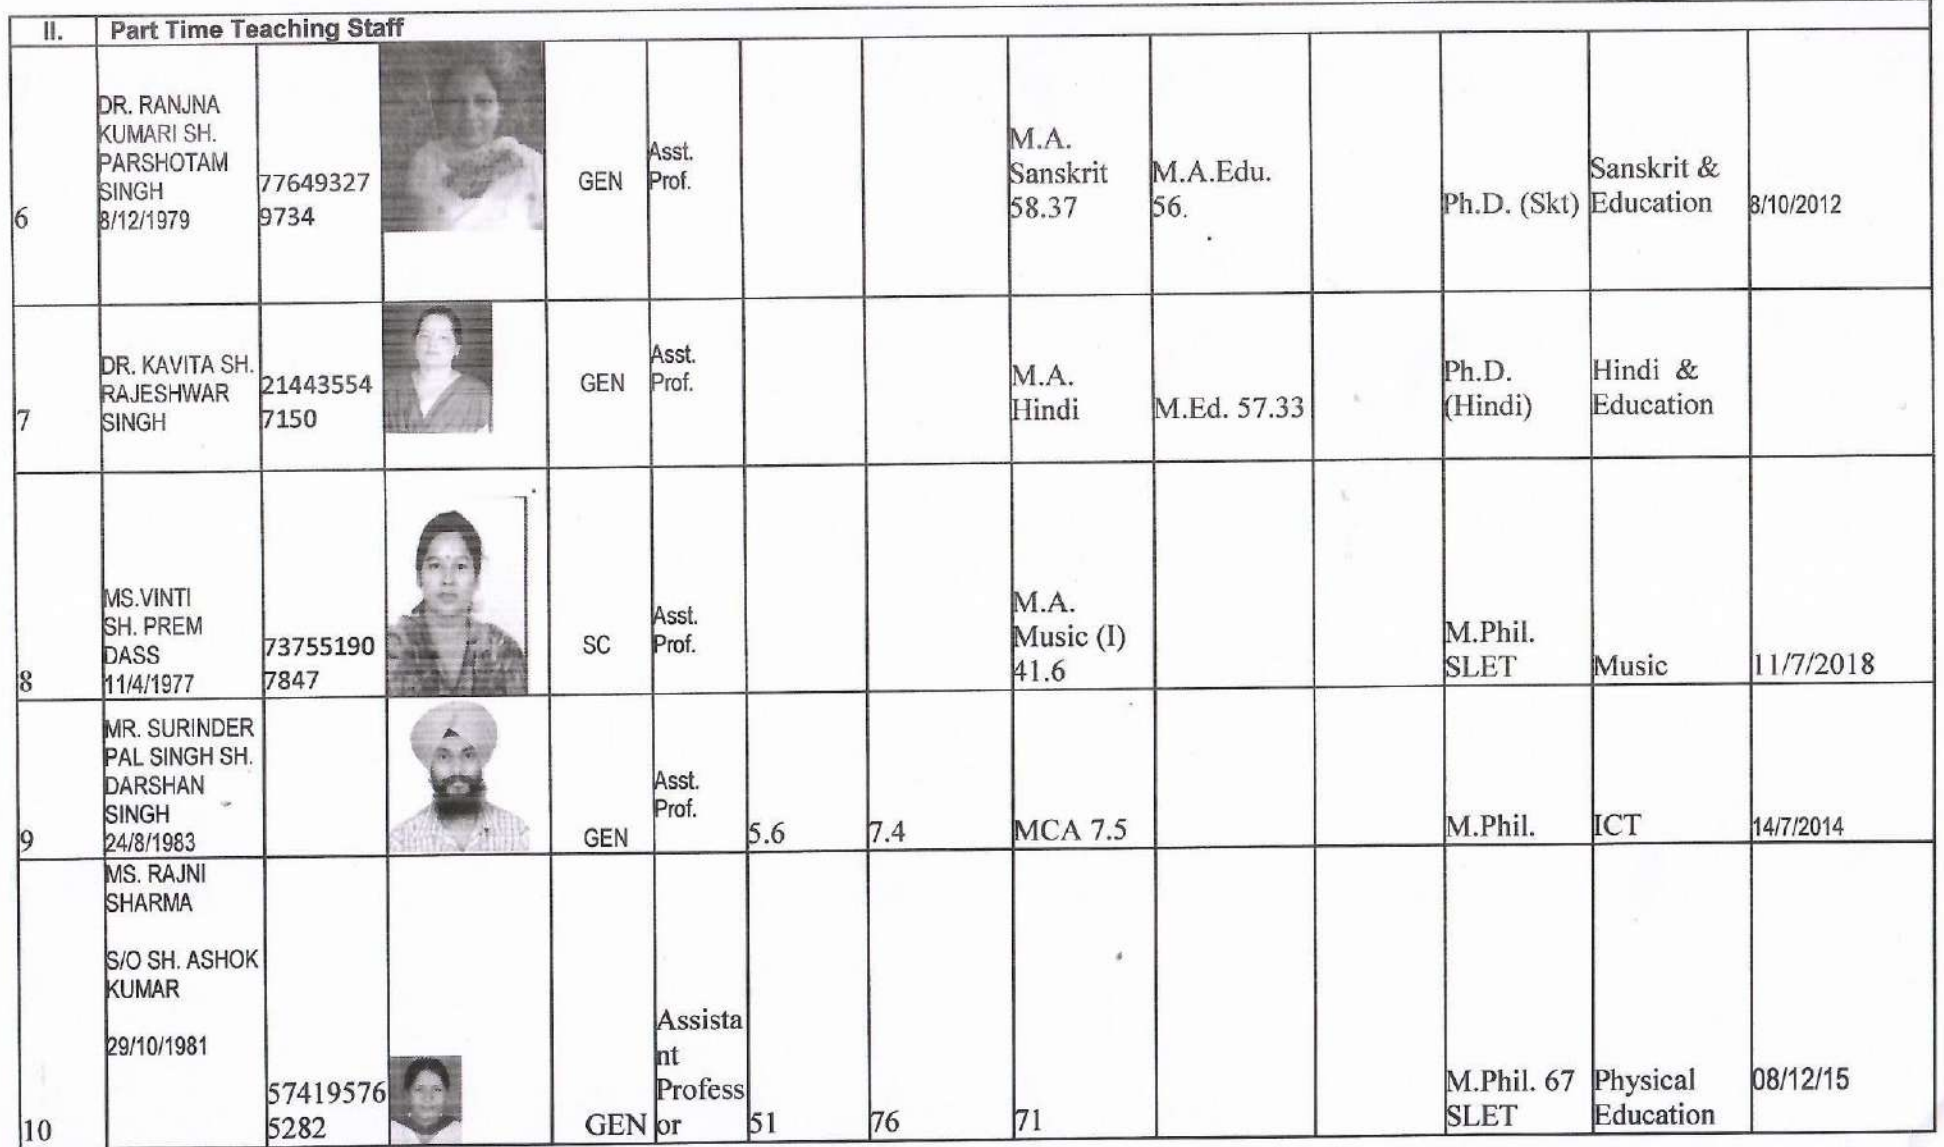 II. Part Time Teaching Staff
6
DR. RANJNA
KUMARI SH.
PARSHOTAM
SINGH
8/12/1979
77649327
9734
GEN
Asst.
Prof.
M.A.
Sanskrit
58.37
M.A.Edu.
56.
Ph.D. (Skt)
Sanskrit &
Education
8/10/2012
7
DR. KAVITA SH.
RAJESHWAR
SINGH
21443554
7150
GEN
Asst.
Prof.
M.A.
Hindi
M.Ed. 57.33
Ph.D.
(Hindi)
Hindi &
Education
8
MS.VINTI
SH. PREM
DASS
11/4/1977
73755190
7847
SC
Asst.
Prof.
M.A.
Music (I)
41.6
M.Phil.
SLET
Music
11/7/2018
9
MR. SURINDER
PAL SINGH SH.
DARSHAN
SINGH
24/8/1983
GEN
Asst.
Prof.
5.6
7.4
MCA 7.5
M.Phil.
ICT
14/7/2014
10
MS. RAJNI
SHARMA
S/O SH. ASHOK
KUMAR
29/10/1981
57419576
5282
GEN
Assista
nt
Profess
or
51
76
71
M.Phil. 67
SLET
Physical
Education
08/12/15